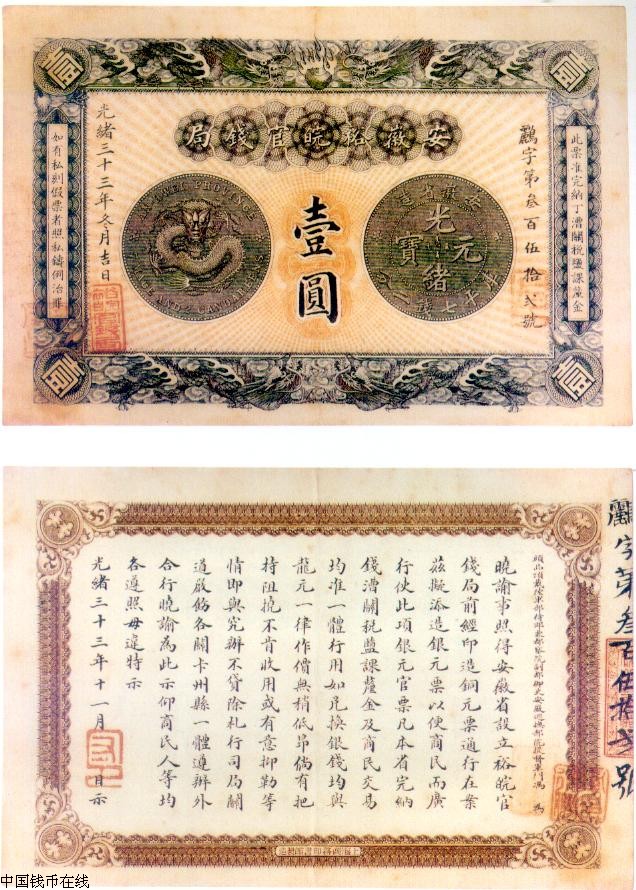 安徽裕皖官錢局
此票准完納丁漕關稅鹽課釐金
字第叁百伍拾弍號
安徽省造
光緒元寶
壹圓
AN-HWEI PROVINCE
光緒三十三年冬月吉日
如有私刻假票者照私鑄例治罪
字第叁百伍拾弍號
頭品頂戴陸軍部侍郎兼都察院副都御史安徽巡撫部院提督軍門馮 為
曉諭事照得安徽省設立裕皖官
錢局前經印造銅元票通行在案
茲擬添造銀元票以便商民而廣
行使此項銀元官票凡本省完納
錢漕關稅鹽課釐金及商民交易
均准一體行用如兌換銀錢均與
龍元一律作價無稍低昂倘有把
持阻撓不肯收用或有意抑勒等
情即與究辦不貸除札行司局關
道啟飭各關卡州縣一體遵辦外
合行曉諭為此示仰商民人等均
各遵照毋違特示
光緒三十三年十一月 日示
上海商務印書館製造
中国钱币在线